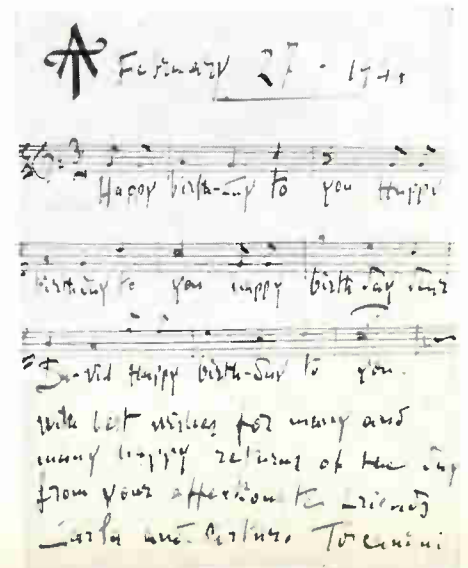 AT February 27 - 19
Happy birth-day to you Happy
birthday to you happy birth day dear
Da-vid Happy birth-day to you.
with best wishes for many and
many happy returns of the day
from your affectionate friends
Carla and Arturo Toscanini